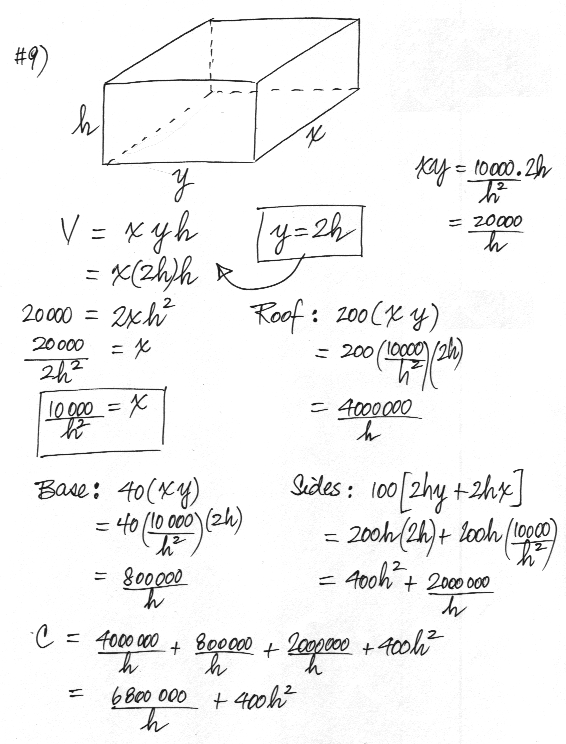 #9)
h
x
y
xy = 10000/h² · 2h
= 20000/h
V = x y h
y = 2h
= x(2h)h
20000 = 2xh²
20000/2h² = x
10000/h² = x
Roof: 200(xy)
= 200(10000/h²)(2h)
= 4000000/h
Base: 40(xy)
= 40(10000/h²)(2h)
= 800000/h
Sides: 100[2hy + 2hx]
= 200h(2h) + 200h(10000/h²)
= 400h² + 2000000/h
C = 4000000/h + 800000/h + 2000000/h + 400h²
= 6800000/h + 400h²